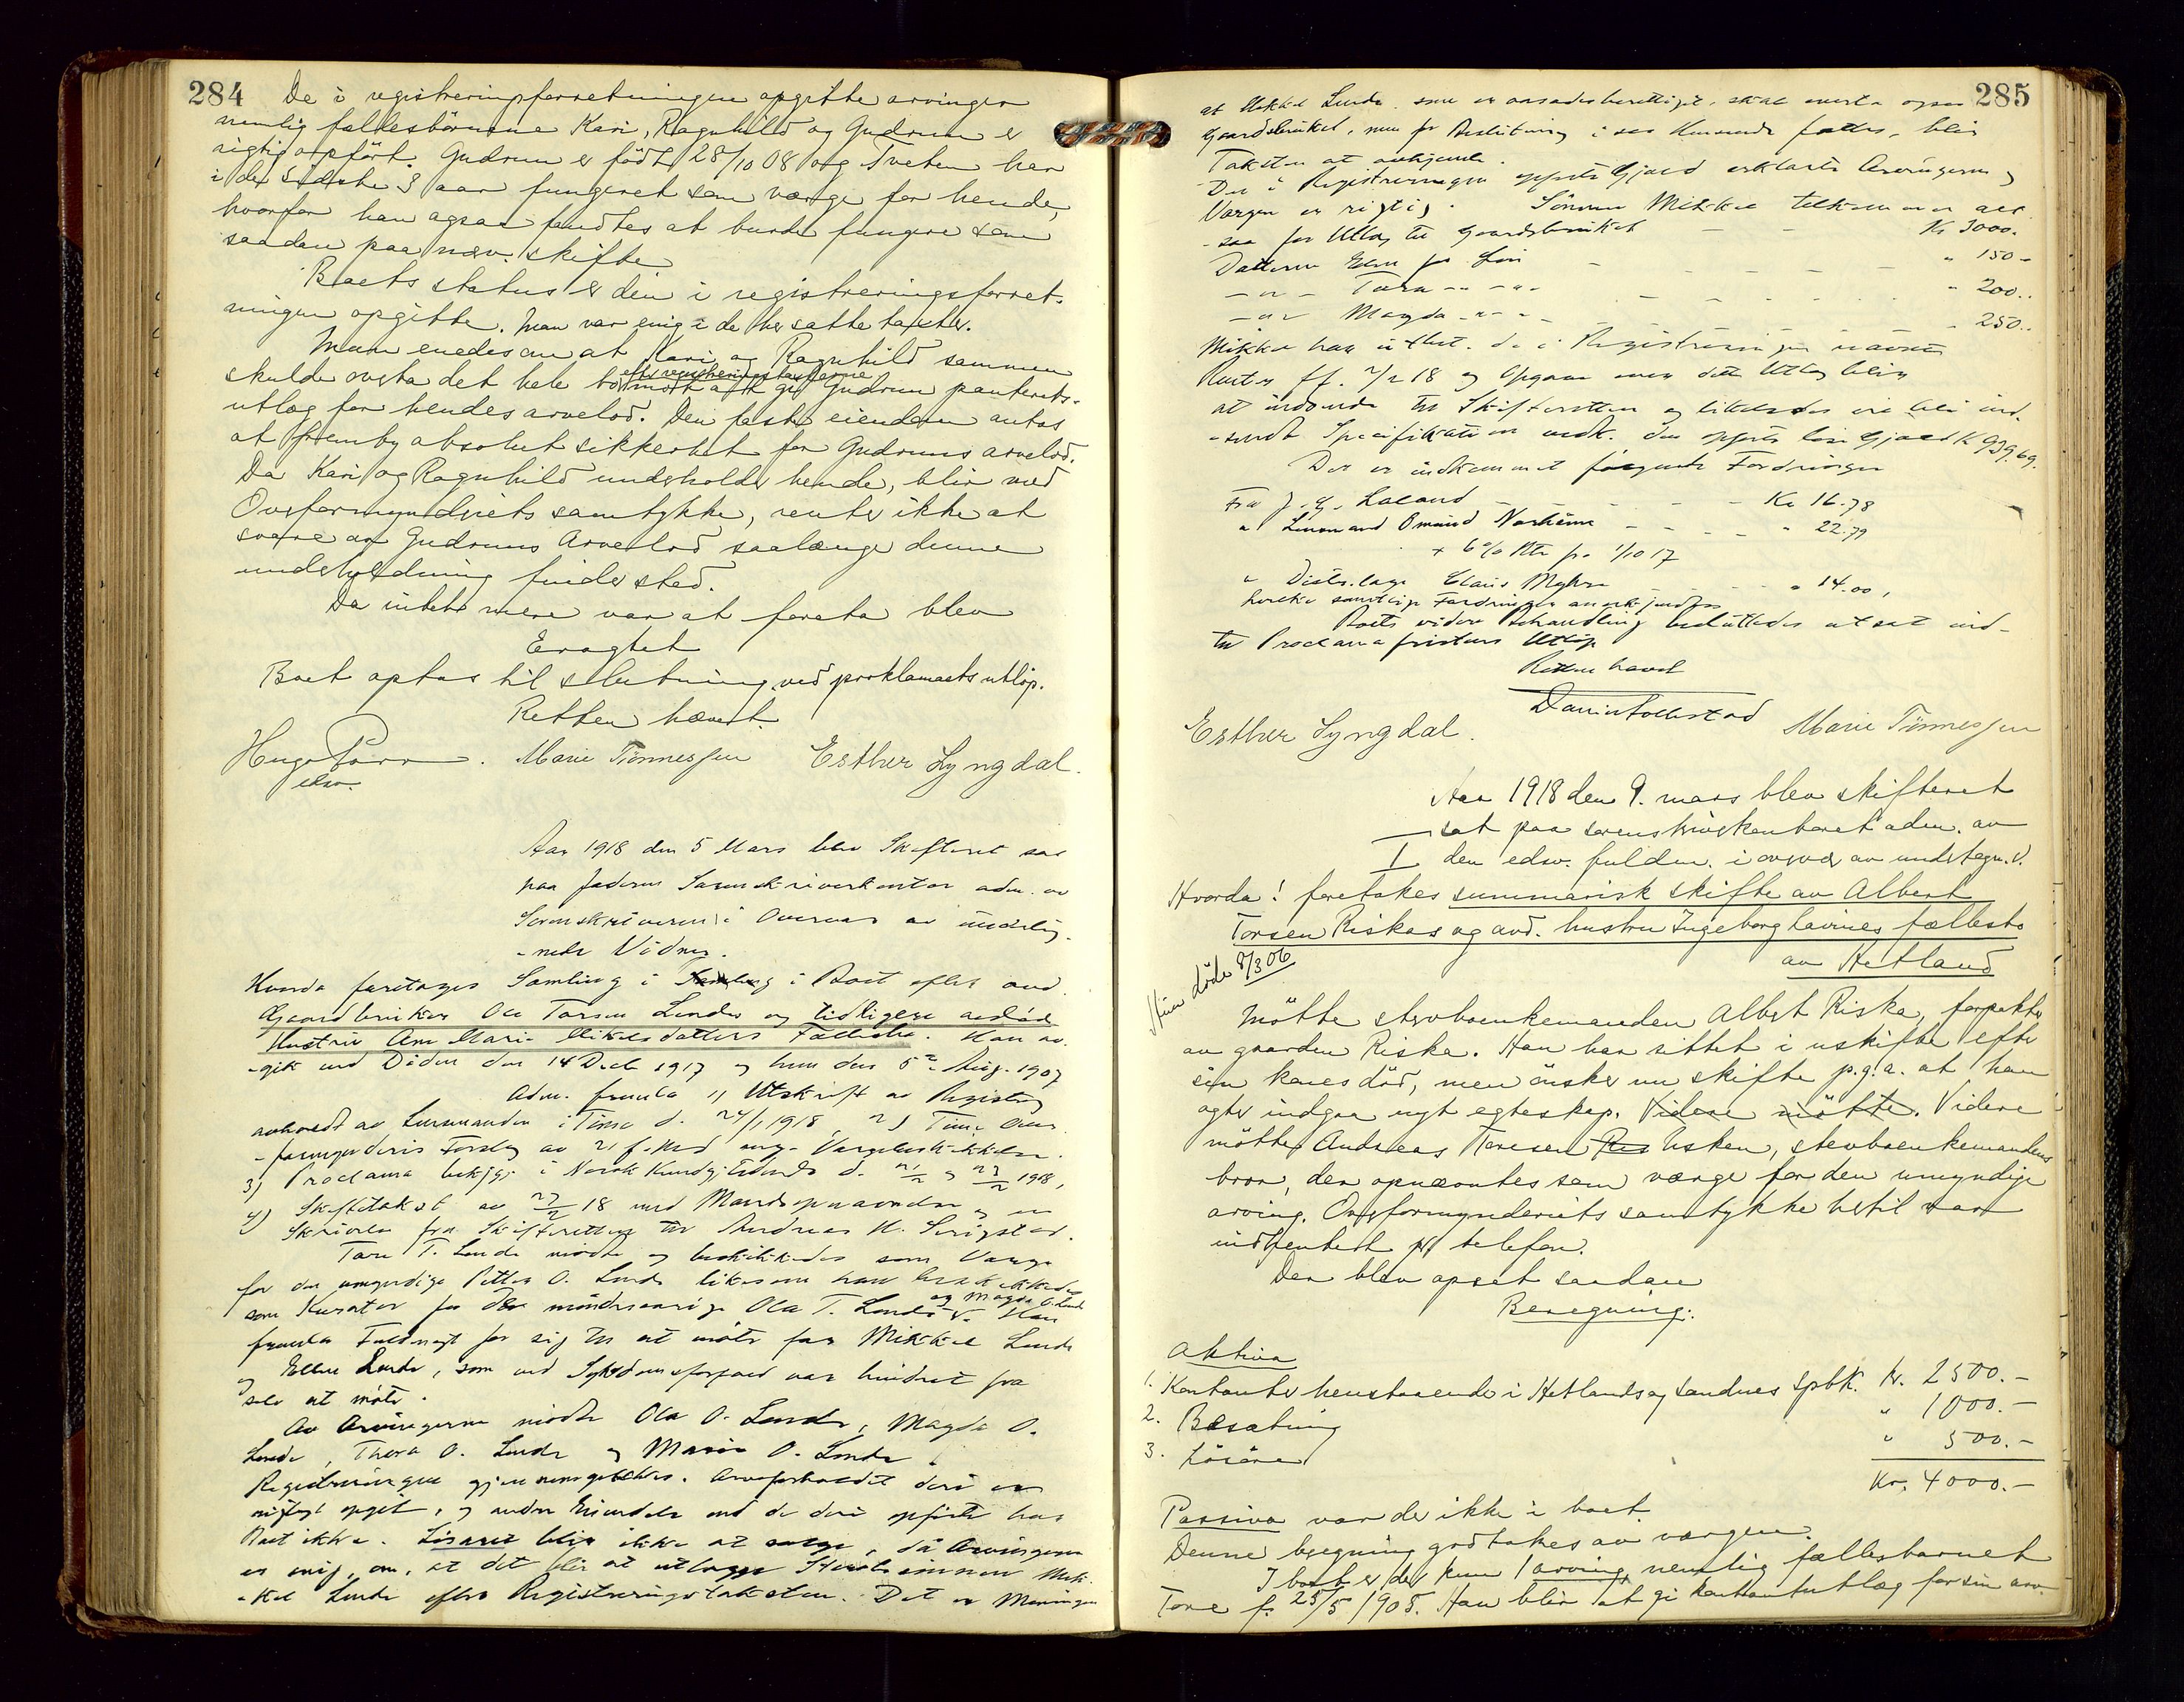 284
De i registreringsforretningen opgitte arvinger
nemlig fællesbörnene Kari, Ragnhild og Gudrun er
rigtig opfört. Gudrun er födt 28/10 08 og Tveten har
i de sidste 3 aar fungeret som værge for hende,
hvorfor han ogsaa fandtes at burde fungere som
saadan paa nærv. skifte
Boets status er den i registreringsforret-
ningen opgitte. Man var enig i de her satte takster.
Man enedes om at Kari og Ragnhild sammen
skulde overta det hele bo efter registreringstaksterne mot at gi Gudrun panterets-
utlæg for hendes arvelod. Den faste eiendom antas
at fremby absolut sikkerhet for Gudruns arvelod.
Da Kari og Ragnhild underholder hende, blir med
Overformynderiets samtykke, renter ikke at
svare av Gudruns Arvelod saalænge denne
underholdning finder sted.
Da intet mere var at foreta blev
Eragtet
Boet optas til slutning ved proklamaets utlöp.
Retten hævet.
Hugo
edsv.
Marie Tönnessen Esther Lyngdal.
Aar 1918 den 5 Mars blev Skifteret sat
paa Jæderens Sorenskriverkontor adm. av
Sorenskriveren i Overvær av underteg-
-nede Vidner.
Hvorda foretoges Samling i Boet efter avd.
Gaardbruker Ole Torsen Lende og tidligere avdöde
Hustru Ane Marie Mikkelsdatters Fællesbo. Han av-
-gik ved Döden den 14 Decb 1917 og hun den 5te Aug. 1907
Adm. fremla 1) Utskrift av Registrg
avholdt av Lensmanden i Time d. 24/1 1918, 2) Time Over-
-formynderis Forslag av 21 f. Md ang. Værgebeskikkelse.
3) Proclama bekjgj. i Norsk Kundgj. Tidende d. 21/2 og 23/2 1918,
4) Skiftetakst av 27/2 18 med Mandsopnævnelse og en
Skrivelse fra Skifteretten til Andreas H. Serigstad.
Tore T. Lende mödte og beskikkedes som Værge
for den umyndige Petter O. Lende likesom han beskikkedes
som Kurator for den mindreaarige Ola T. Lende og Magda O. Lende. Han
fremla Fuldmagt for sig til at möte for Mikkel Lende
og Ellen Lende, som ved Sygdomsforfald var hindret fra
selv at möte.
Av Arvingerne mödte Ola O. Lende, Magda O.
Lende, Thora O. Lende og Marie O. Lende.
Registreringen gjennemgikkes. Arveforholdet deri er
rigtigt opgit, og andre Eiendele end de deri opförte har
Boet ikke. Lösöret blir ikke at sælge, da Arvingerne
er enig om, at det blir at utlægge Sterb sönnen Mik-
-kel Lende efter Registreringstaksten. Det er Meningen
285
at Mikkel Lende, som er aasædesberettiget, skal overta ogsaa
Gaardsbruket, men för Beslutning i saa Henseende fattes, blir
Taksten at avhjemle.
Den i Registreringen opförte Gjæld erklærte Arvingerne og
Værgen er rigtig. Sönnen Mikkel tilkommer alt-
-saa for Utlæg til Gaardsbruket – – – Kr 3000.
Datteren Ellen for Lön – – – – – " 150 –
– " – Tora – " – " – – – – – – " 200..
– " – Magda – " – " – – – – – 250..
Mikkel har utbet. de i Registreringen nævnte
Renter ff. 2/2 18 og Opgave over det Utlæg blir
at indsende til Skifteretten og likeledes vil bli ind-
-sendt Specifikation vedk. den opförte lön Gjæld K 939.69.
Der er indkommet fölgende Fordringer
Fra J. G. Laland – – – – – Kr 16.78
" Lensmand Omund Norheim – – – – " 22.79
+ 6% Rte fra 1/10 17
" Distr.læge Claus Myhre – – – " 14.00,
hvilke samtlige Fordringer anerkjendtes
Boets videre Behandling besluttedes utsat ind-
til Proclama fristens Utlöp
Retten hævet
Esther Lyngdal. Marie Tönnessen
Aar 1918 den 9. mars blev skifteret
sat paa sorenskriverkontoret adm. av
den edsv. fuldm. i overvær av undertegn. v.
Hvorda! foretokes summarisk skifte av Albert
Torsen Riskas og avd. hustru Ingeborg Lavines fællesbo
av Hetland
Hun döde 8/3 06
Mötte sterboenkemanden Albert Riska, forpakter
av gaarden Riska. Han har sittet i uskifte efter
sin kones död, men önsker nu skifte p.g.a. at han
agter indgaa nyt egteskap. Videre mötte. Videre
mötte Andreas Toresen Usken, sterboenkemandens
bror, den opnævntes som værge for den umyndige
arving. Overformynderiets samtykke hertil var
indhentet pr telefon.
Der blev opsat saadan
Beregning:
Aktiva
1. Kontanter henstaaende i Hetlands og Sandnes Spbk. Kr. 2500.–
2. Besætning " 1000.–
3. Lösöre " 500.–
Kr. 4000.–
Passiva var der ikke i boet.
Denne beregning godtokes av værgen.
I boet er der kun 1 arving, nemlig fællesbarnet
Tore f. 25/5 1905. Han blir at gi kontantutlæg for sin arv.